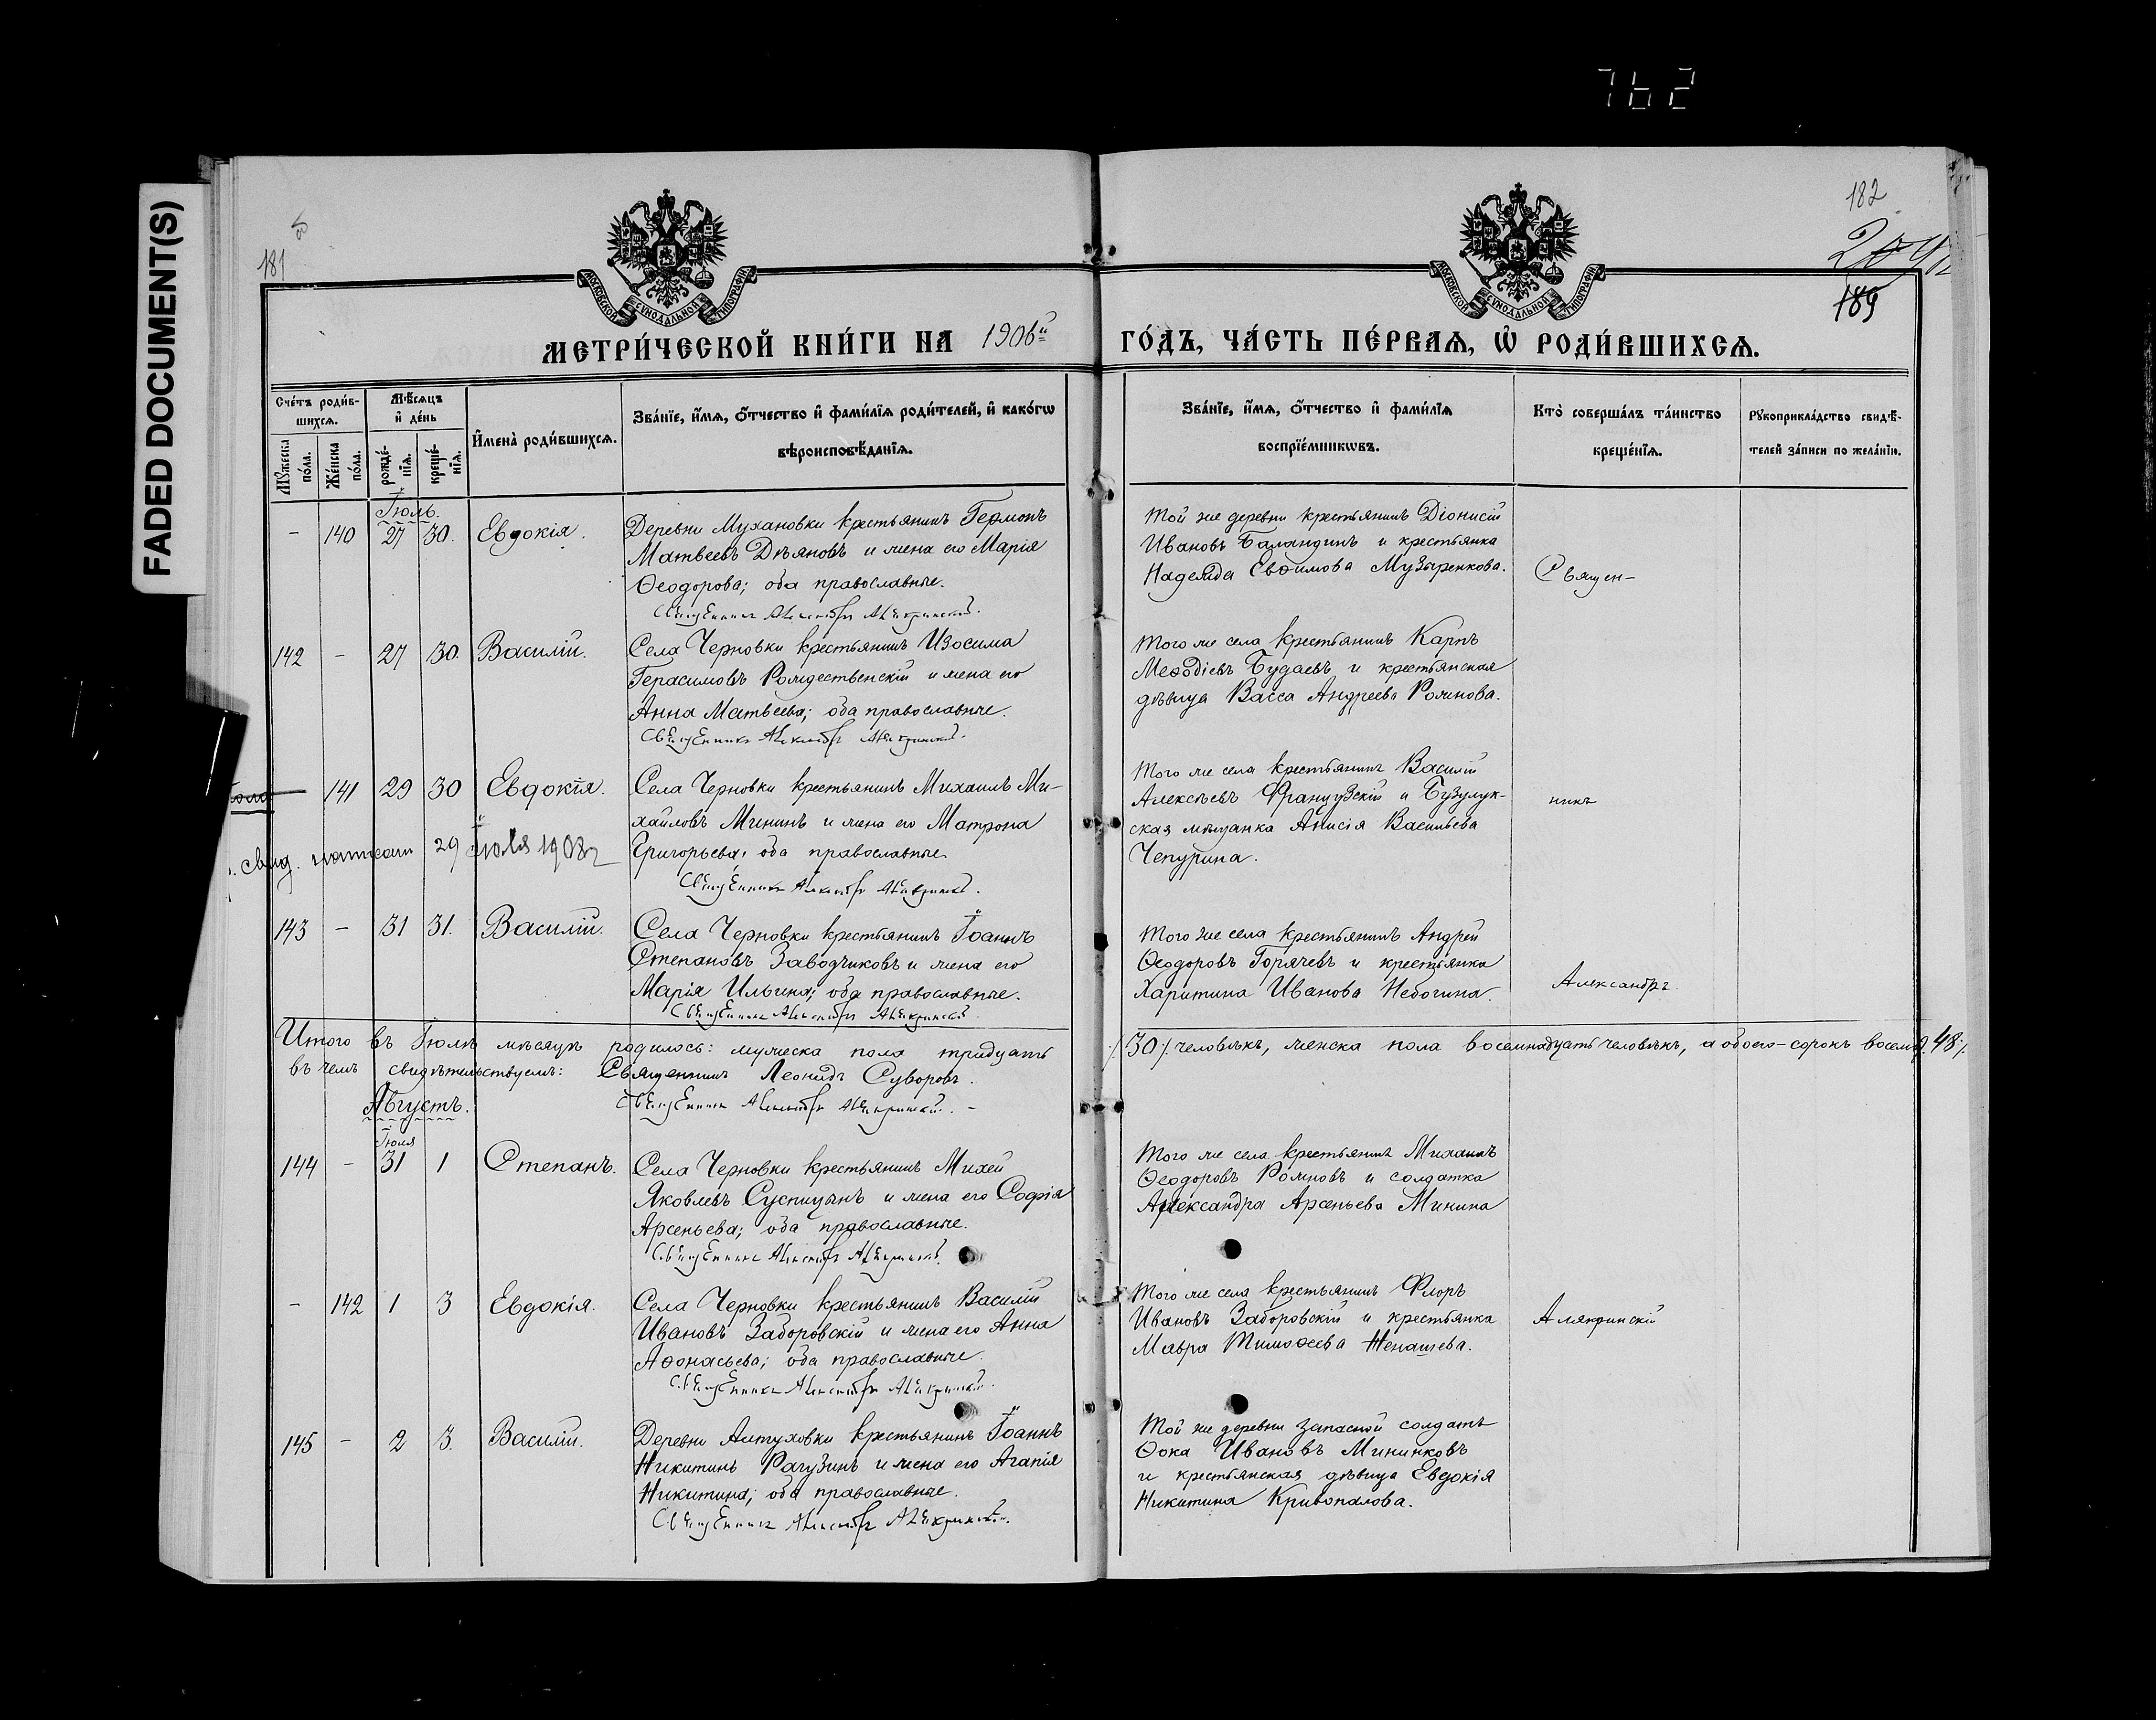 762
FADED DOCUMENT(S)
181
182
189
МОСКОВСКОЙ СѴНОДАЛЬНОЙ ТИПОГРАФІИ
МОСКОВСКОЙ СѴНОДАЛЬНОЙ ТИПОГРАФІИ
МЕТРИ́ЧЕСКОЙ КНИ́ГИ НА 1906й
ГО́ДЪ, ЧА́СТЬ ПЕ́РВАѦ, Ѡ҆ РОДИ́ВШИХСѦ.
Сче́тъ роди́в-
шихсѧ.
Мꙋ́жеска по́ла.
Же́нска по́ла.
Мѣ́сѧцъ и҆ де́нь
рожде́-нїѧ.
креще́-нїѧ.
И҆мена̀ роди́вшихсѧ.
Зва́нїе, и҆́мѧ, ѻ҆́тчество и҆ фами́лїѧ роди́телей, и҆ како́гѡ
вѣроисповѣ́данїѧ.
Зва́нїе, и҆́мѧ, ѻ҆́тчество и҆ фами́лїѧ
воспрїе́мникѡвъ.
Кто̀ соверша́лъ та́инство
креще́нїѧ.
Рꙋкоприкла́дство свидѣ́-
телей за́писи по жела́нїю.
Іюль.
– 140 27 30. Евдокія.
Деревни Мухановки крестьянинъ Гермонъ
Матвеевъ Дѣяновъ и жена его Марія
Ѳеодорова; оба православные.
Священникъ Александръ Алякринскій.
Той же деревни крестьянинъ Діонисій
Ивановъ Баландинъ и крестьянка
Надежда Евѳимова Музыренкова.
Священ-
142 – 27 30. Василій.
Села Черновки крестьянинъ Изосима
Герасимовъ Рождественскій и жена его
Анна Матвеева; оба православные.
Священникъ Александръ Алякринскій.
Того же села крестьянинъ Карпъ
Меѳодіевъ Будаевъ и крестьянская
дѣвица Васса Андреева Рожнова.
– 141 29 30 Евдокія.
Села Черновки крестьянинъ Михаилъ Ми-
хайловъ Мининъ и жена его Матрона
Григорьева, оба православные.
Священникъ Александръ Алякринскій.
свид. 29 Іюля 1908г
Того же села крестьянинъ Василій
Алексѣевъ Французскій и Бузулук-
ская мѣщанка Анисія Васильева
Чепурина.
никъ
143 – 31 31. Василій.
Села Черновки крестьянинъ Іоаннъ
Степановъ Заводчиковъ и жена его
Марія Ильина; оба православные.
Священникъ Александръ Алякринскій
Того же села крестьянинъ Андрей
Ѳеодоровъ Горячевъ и крестьянка
Харитина Иванова Небогина.
Александръ
Итого въ Іюлѣ мѣсяцѣ родилось: мужеска пола тридцать /30/. человѣкъ, женска пола восемнадцать человѣкъ, а обоего–сорокъ восемь 48/.
въ чемъ свидѣтельствуемъ: Священникъ Леонидъ Суворовъ.
Священникъ Александръ Алякринскій. –
Августъ.
Іюля
144 – 31 1 Степанъ.
Села Черновки крестьянинъ Михей
Яковлевъ Суспицынъ и жена его Софія
Арсеньева; оба православные.
Священникъ Александръ Алякринскій.
Того же села крестьянинъ Михаилъ
Ѳеодоровъ Рожновъ и солдатка
Александра Арсеньева Минина
– 142 1 3 Евдокія.
Села Черновки крестьянинъ Василій
Ивановъ Заборовскій и жена его Анна
Аѳонасьева; оба православные.
Священникъ Александръ Алякринскій.
Того же села крестьянинъ Флоръ
Ивановъ Заборовскій и крестьянка
Мавра Тимоѳеева Ненашева.
Алякринскій
145 – 2 3. Василій.
Деревни Алтуховки крестьянинъ Іоаннъ
Никитинъ Рагузинъ и жена его Агапія
Никитина; оба православные.
Священникъ Александръ Алякринскій.
Той же деревни запасной солдатъ
Ѳока Ивановъ Мининковъ
и крестьянская дѣвица Евдокія
Никитина Кривопалова.